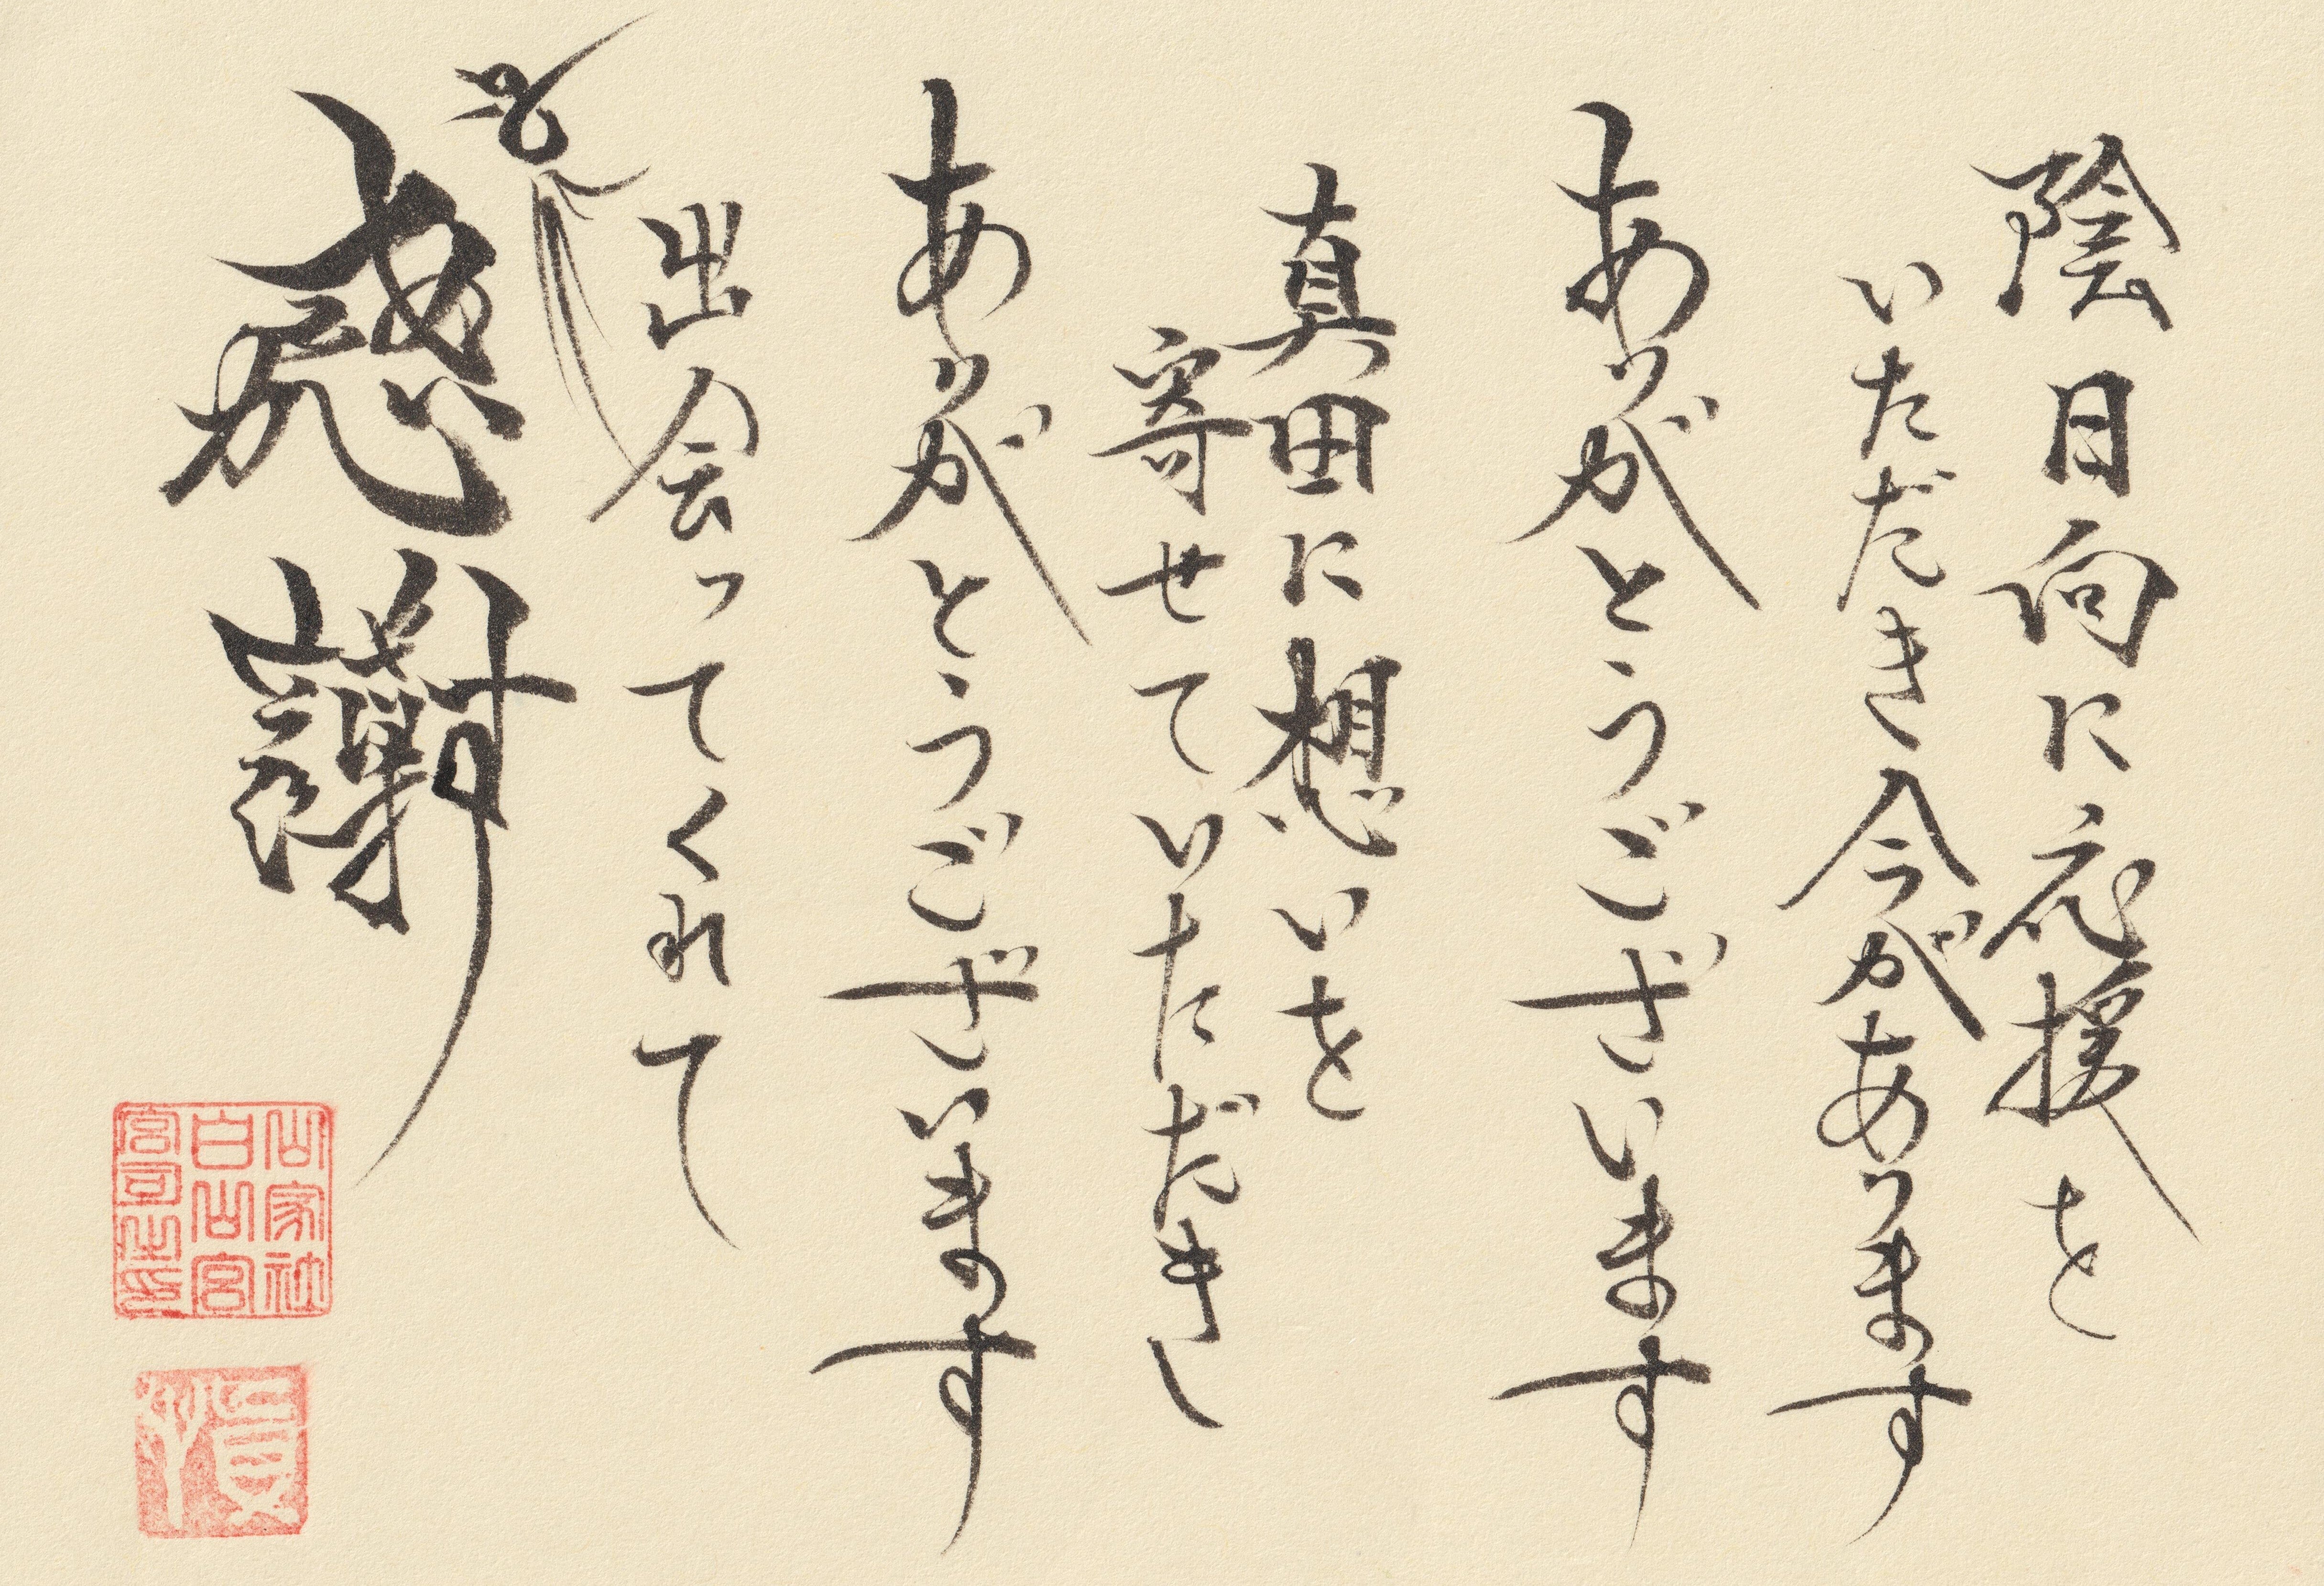 陰日向に応援を
いただき今があります
ありがとうございます
真田に想いを
寄せていただきし
ありがとうございます
出会ってくれて
感謝
山家社
白山宮
宮司之印